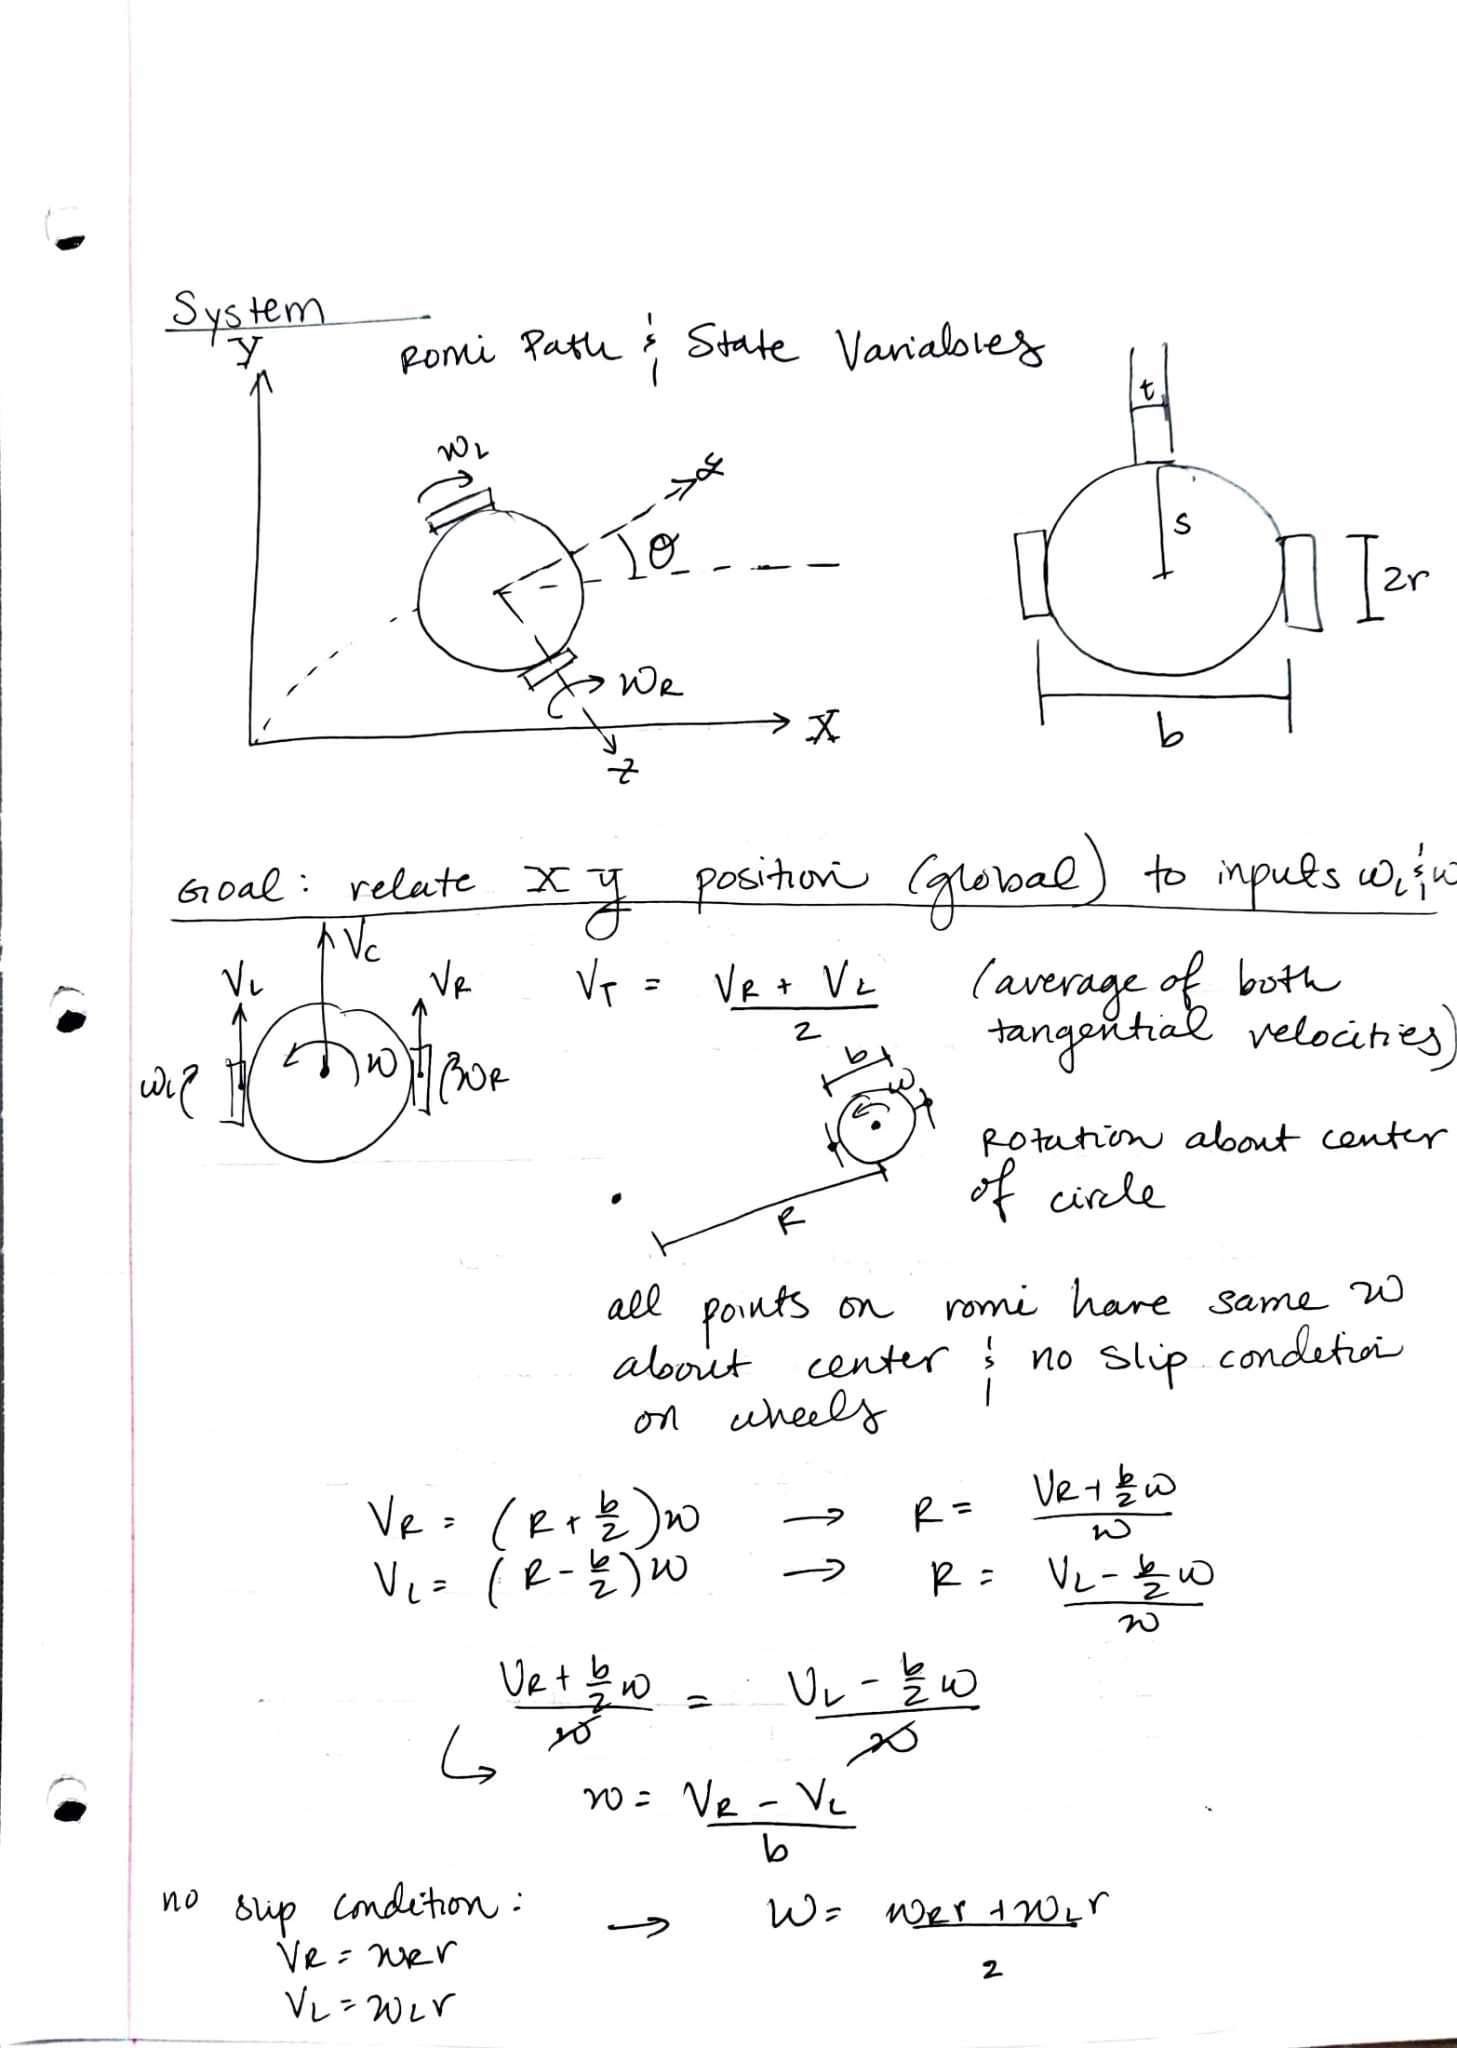 System
Romi Path & State Variables
y
t
ωL
x
θ
s
2r
ωR
X
z
b
Goal: relate x y position (global) to inputs ωL & ω
Vc
VL
VR
VT = (VR + VL)/2 (average of both
tangential velocities)
ωL
ω
ωR
b
ω
Rotation about center
of circle
R
all points on romi have same ω
about center & no slip condition
on wheels
VR = (R + b/2)ω → R = (VR + b/2 ω)/ω
VL = (R - b/2)ω → R = (VL - b/2 ω)/ω
(VR + b/2 ω)/ω = (VL - b/2 ω)/ω
↳ ω = (VR - VL)/b
no slip condition: → ω = (ωRr + ωLr)/2
VR = ωRr
VL = ωLr